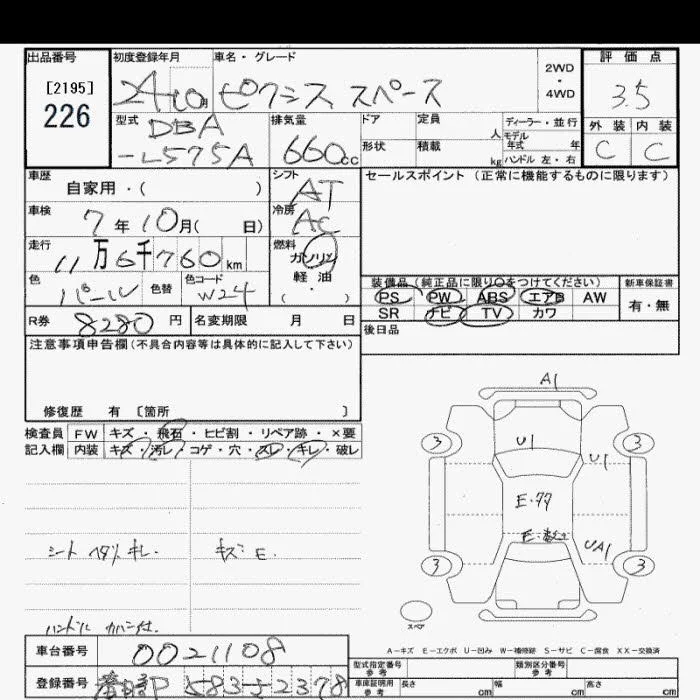 出品番号
[2195]
226
初度登録年月
24 10月
車名・グレード
ピクシス スペース
2WD
・
4WD
評価点
3.5
外装 内装
C C
型式
DBA
-L575A
排気量
660cc
ドア
形状
定員
人
積載
kg
ディーラー・並行
モデル
年式 年
ハンドル 左・右
車歴
自家用・( )
シフト
AT
セールスポイント(正常に機能するものに限ります)
車検
7年10月( 日)
冷房
AC
走行
11万6千760km
燃料
ガソリン
軽油
・
( )
色
パール
色替
色コード
W24
装備品(純正品に限り○をつけてください)
PS PW ABS エアB AW
SR ナビ TV カワ
新車保証書
有・無
R券
8280円
名変期限 月 日
後日品
注意事項申告欄(不具合内容等は具体的に記入して下さい)
修復歴 有 〔箇所 〕
検査員
記入欄
FW キズ・飛石・ヒビ割・リペア跡・×要
内装 キズ・汚レ・コゲ・穴・スレ・キレ・破レ
シート ヘタリ キレ.
キズ E.
ハンドル
A1
3
3
U1
U1
E.
UA1
3
3
スペア
A-キズ E-エクボ U-凹み W-補修跡 S-サビ C-腐食 XX-交換済
車台番号
0021108
登録番号
583 2378
型式指定番号
参考
類別区分番号
参考
車庫証明用
参考
長さ cm
幅 cm
高さ cm